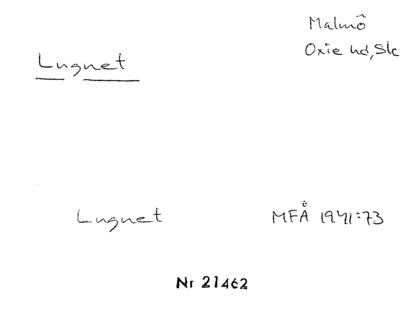 Malmö
Oxie hd, Sk
Lugnet
Lugnet MFÅ 1941:73
Nr 21462